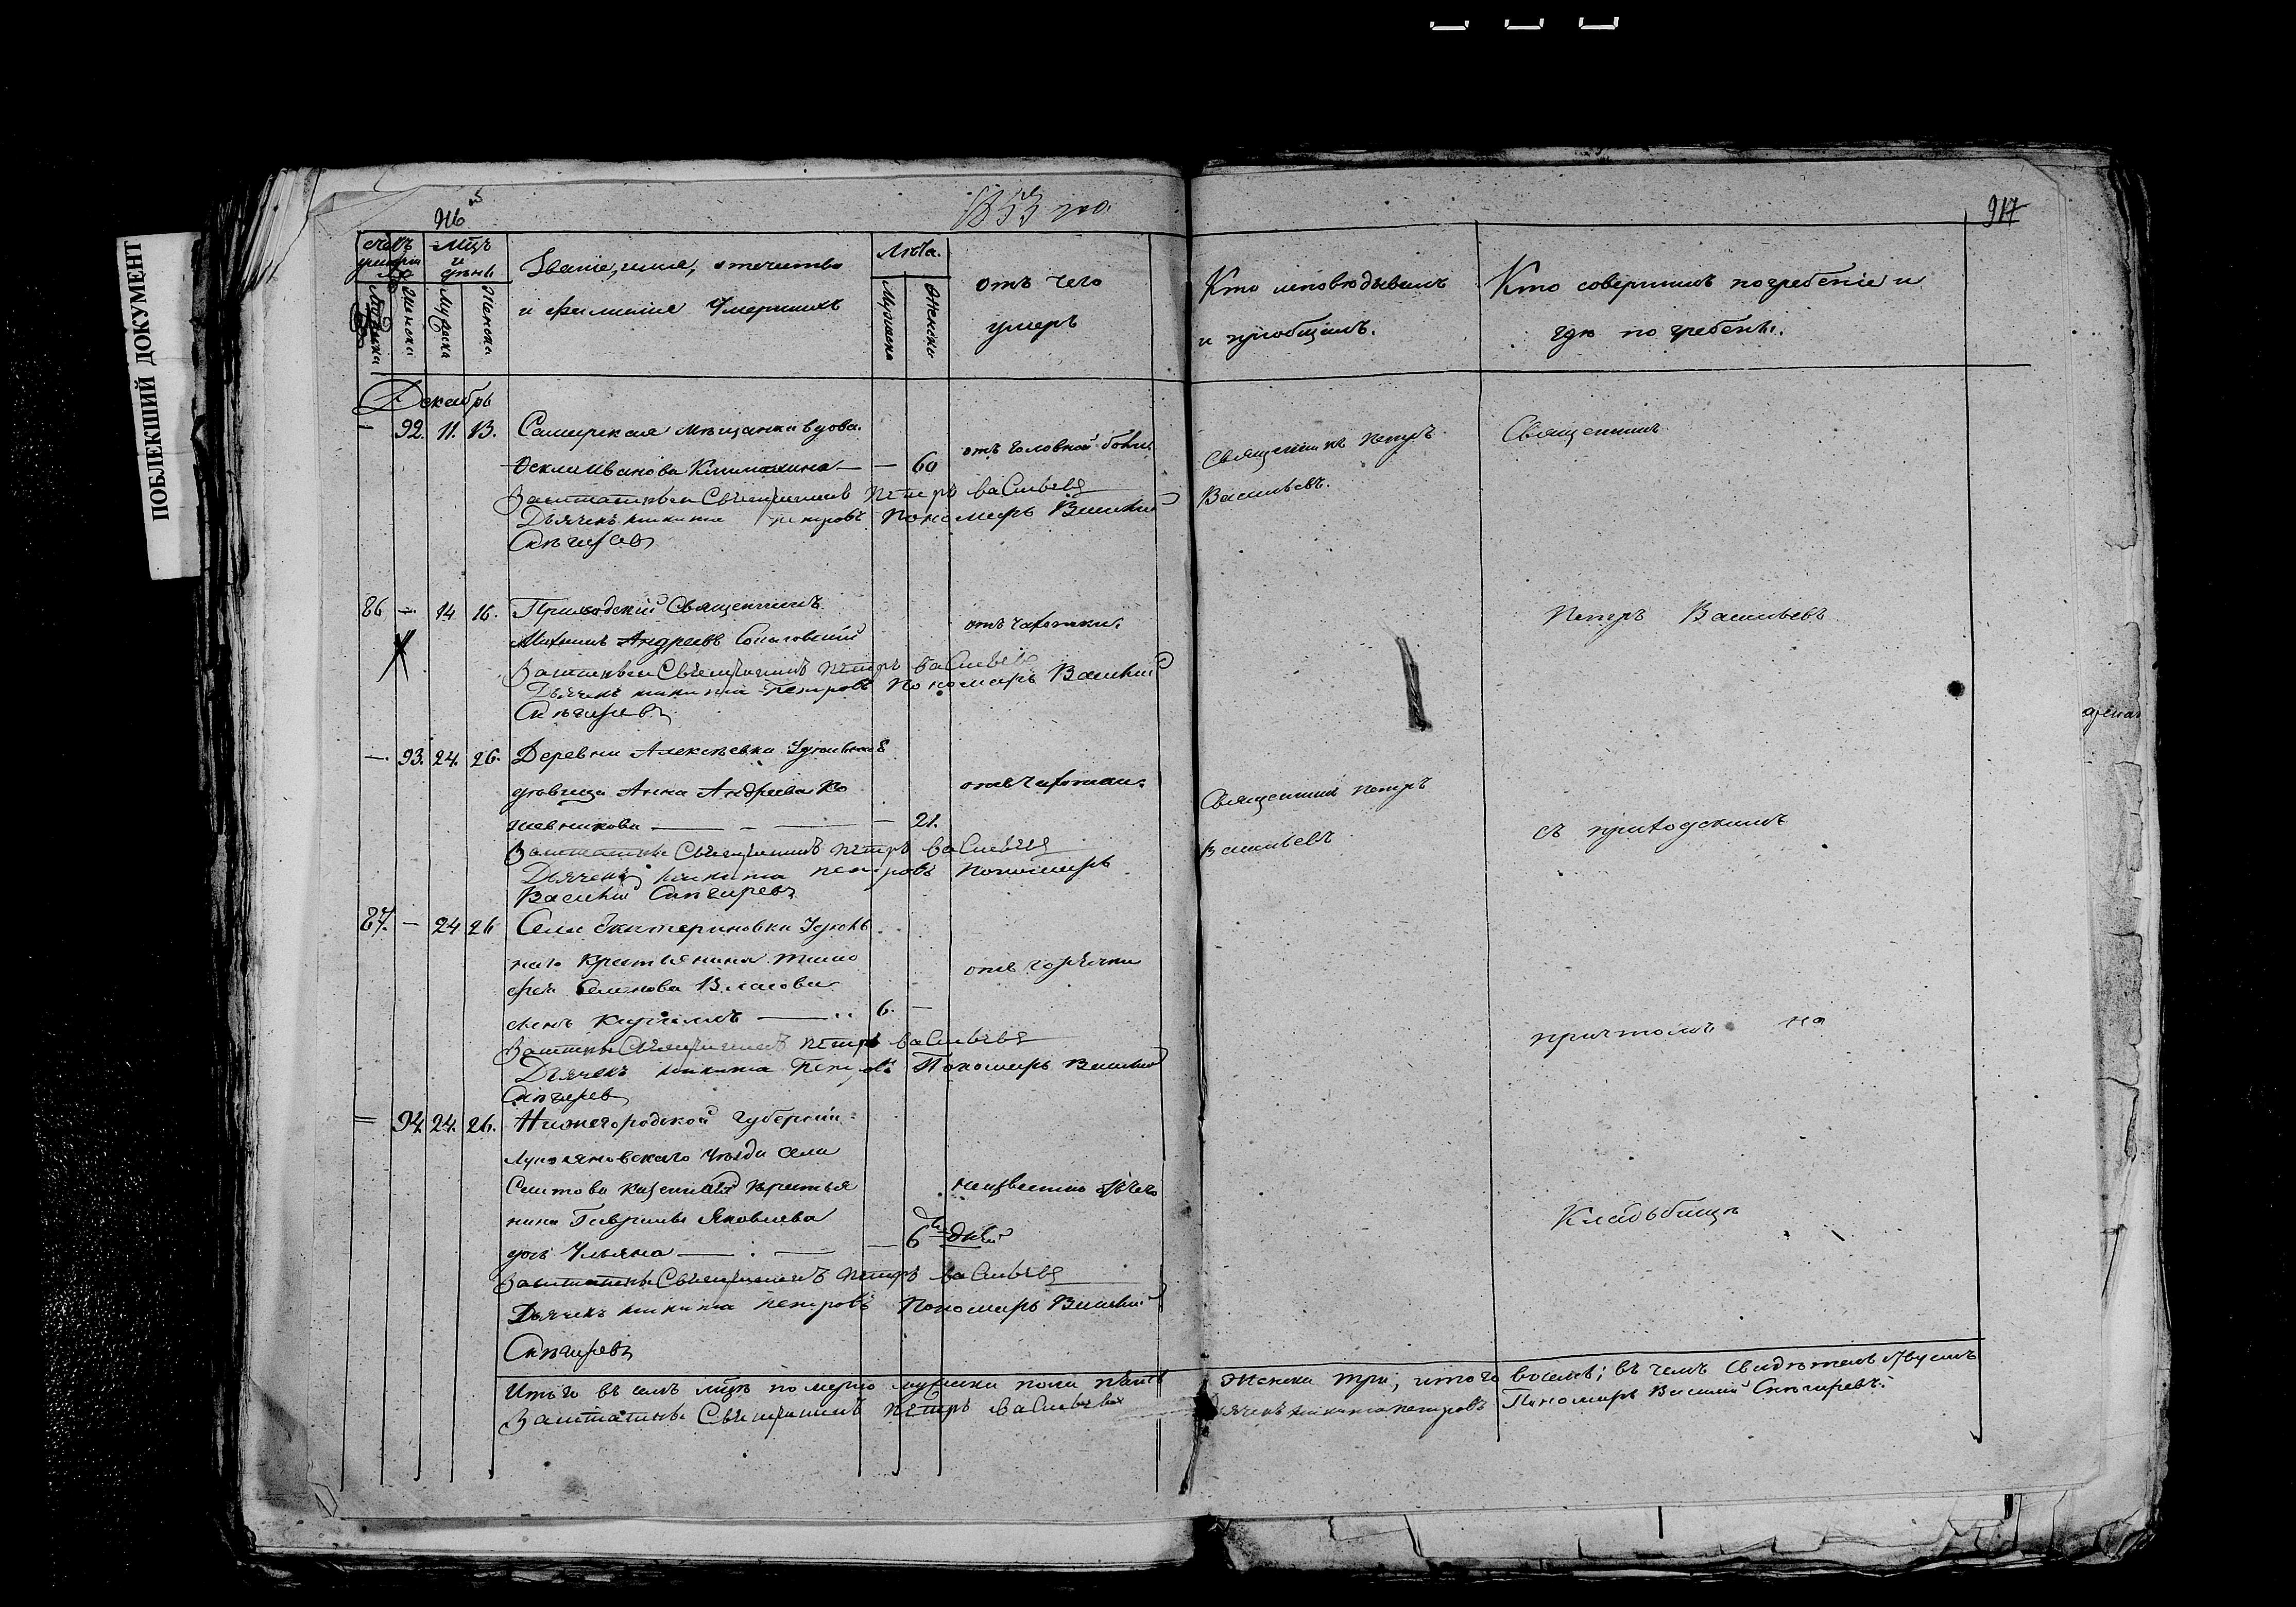 ПОБЛЕКШИЙ ДОКУМЕНТ
916
1853 го
917
Счетъ умершихъ
Мужеска
Женска
Мцъ и день
Мужеска
Женска
Званіе, имя, отечество
и фамилія Умершихъ
Лѣта.
Мужеска
Женска
отъ чего
умеръ
Кто исповѣдывалъ
и пріобщалъ.
Кто совершилъ погребеніе и
гдѣ погребены.
Декабрь
— 92. 11. 13. Самарская мѣщанка вдова.
Иванова — — 60
отъ головной боли
Священникъ Петръ
Васильевъ.
Священникъ
Заштатный Священникъ Петръ Васильевъ
Дьячекъ Никита Петровъ Пономарь Василій
Снѣгиревъ
86 — 14 16. Приходскій Священникъ
Михаилъ Андреевъ
отъ чахотки.
Петръ Васильевъ
Заштатный Священникъ Петръ Васильевъ
Дьячекъ Никита Петровъ Пономарь Василій
Снѣгиревъ
—. 93. 24. 26. Деревни Алексѣевки Удѣльная
Анна Андреева Ко
жевникова — — — 21.
отъ чахотки.
Священникъ Петръ
Васильевъ
съ приходскимъ
Заштатный Священникъ Петръ Васильевъ
Дьячекъ Никита Петровъ Пономарь
Василій Снѣгиревъ
87. — 24 26 Села Екатериновки Удѣль
наго Крестьянина Тимо
фея Семенова Власова
сынъ — 6. —
отъ горячки
причтомъ на
Заштатный Священникъ Петръ Васильевъ
Дьячекъ Никита Петровъ Пономарь Василій
Снѣгиревъ
= 94. 24. 26. Нижегородской губерніи
Лукояновскаго Уѣзда села
казеннаго крестья
нина Гаврилы Яковлева
дочь Ульяна — — — 6 дней
неизвестно отъ чего
Кладьбищѣ
Заштатный Священникъ Петръ Васильевъ
Дьячекъ Никита Петровъ Пономарь Василій
Снѣгиревъ
Итого въ семъ мцѣ померло мужеска пола пять женска три, итого восемь; въ чемъ свидѣтельствуемъ
Заштатный Священникъ Петръ Васильевъ Дьячекъ Никита Петровъ Пономарь Василій Снѣгиревъ.